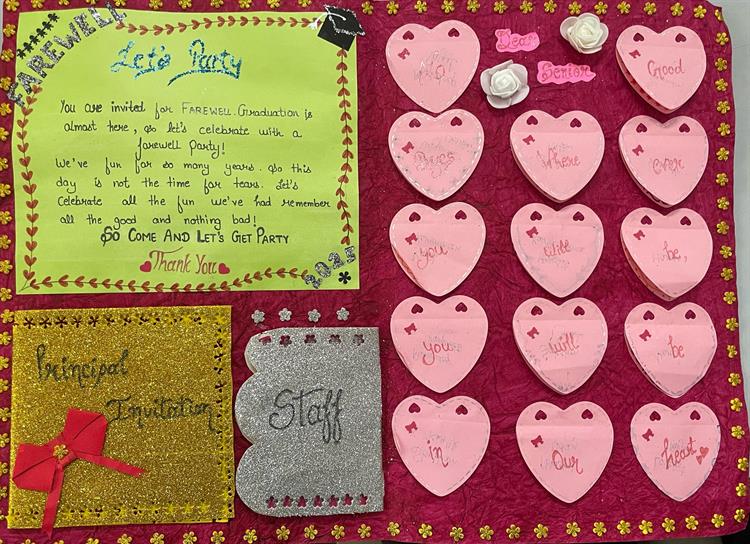 FAREWELL
Let's Party
You are invited for FAREWELL. Graduation is
almost here, so let's celebrate with a
farewell Party!
We've fun for so many years. So this
day is not the time for tears. Let's
Celebrate all the fun we've had remember
all the good and nothing bad!
SO COME AND LET'S GET PARTY
Thank You
2025
Principal
Invitation
Staff
Dear
Senior
Good
Byes Where ever
you will be,
you will be
in Our heart